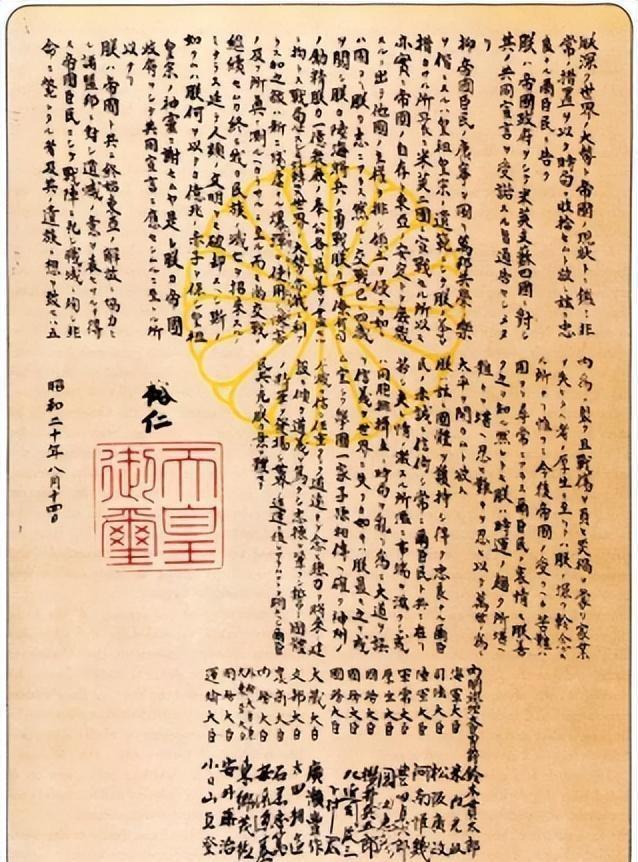 朕深ク世界ノ大勢ト帝國ノ現狀トニ鑑ミ非
常ノ措置ヲ以テ時局ヲ收拾セムト欲シ茲ニ忠
良ナル爾臣民ニ告ク
朕ハ帝國政府ヲシテ米英支蘇四國ニ對シ
其ノ共同宣言ヲ受諾スル旨通告セシメタ
リ
抑〻帝國臣民ノ康寧ヲ圖リ萬邦共榮ノ樂
ヲ偕ニスルハ皇祖皇宗ノ遺範ニシテ朕ノ拳々
措カサル所曩ニ米英二國ニ宣戰セル所以モ
亦實ニ帝國ノ自存ト東亞ノ安定トヲ庶幾
スルニ出テ他國ノ主權ヲ排シ領土ヲ侵スカ如
キハ固ヨリ朕カ志ニアラス然ルニ交戰已ニ四歳
ヲ閲シ朕カ陸海將兵ノ勇戰朕カ百僚有司
ノ勵精朕カ一億衆庶ノ奉公各〻最善ヲ盡セル
ニ拘ラス戰局必スシモ好轉セス世界ノ大勢亦我ニ利
アラス加之敵ハ新ニ殘虐ナル爆彈ヲ使用シテ慘害
ノ及フ所眞ニ測ルヘカラサルニ至ル而モ尚交戰ヲ
繼續セムカ終ニ我カ民族ノ滅亡ヲ招來スル
ノミナラス延テ人類ノ文明ヲモ破却スヘシ斯ノ
如クムハ朕何ヲ以テカ億兆ノ赤子ヲ保シ皇祖
皇宗ノ神靈ニ謝セムヤ是レ朕カ帝國
政府ヲシテ共同宣言ニ應セシムルニ至レル所
以ナリ
朕ハ帝國ト共ニ終始東亞ノ解放ニ協力セ
ル諸盟邦ニ對シ遺憾ノ意ヲ表セサルヲ得
ス帝國臣民ニシテ戰陣ニ死シ職域ニ殉シ非
命ニ斃レタル者及其ノ遺族ニ想ヲ致セハ五
内為ニ裂ク且戰傷ヲ負ヒ災禍ヲ蒙リ家業
ヲ失ヒタル者ノ厚生ニ至リテハ朕ノ深ク軫念ス
ル所ナリ惟フニ今後帝國ノ受クヘキ苦難ハ
固ヨリ尋常ニアラス爾臣民ノ衷情モ朕善
ク之ヲ知ル然レトモ朕ハ時運ノ趨ク所堪ヘ
難キヲ堪ヘ忍ヒ難キヲ忍ヒ以テ萬世ノ為ニ
太平ヲ開カムト欲ス
朕ハ茲ニ國體ヲ護持シ得テ忠良ナル爾臣
民ノ赤誠ニ信倚シ常ニ爾臣民ト共ニ在リ
若シ夫レ情ノ激スル所濫ニ事端ヲ滋クシ或
ハ同胞排擠互ニ時局ヲ亂リ為ニ大道ヲ誤
リ信義ヲ世界ニ失フカ如キハ朕最モ之ヲ戒
ム宜シク擧國一家子孫相傳ヘ確ク神州ノ
不滅ヲ信シ任重クシテ道遠キヲ念ヒ總力ヲ將來ノ建
設ニ傾ケ道義ヲ篤クシ志操ヲ鞏クシ誓テ國體
ノ精華ヲ發揚シ世界ノ進運ニ後レサラムコトヲ期スヘシ爾臣
民其レ克ク朕カ意ヲ體セヨ
裕仁
天皇
御璽
昭和二十年八月十四日
内閣總理大臣男爵鈴木貫太郎
海軍大臣 米内光政
司法大臣 松阪廣政
陸軍大臣 阿南惟幾
軍需大臣 豊田貞次郎
厚生大臣 岡田忠彦
國務大臣 櫻井兵五郎
國務大臣 左近司政三
國務大臣 下村宏
大藏大臣 廣瀬豊作
文部大臣 太田耕造
農商大臣 石黒忠篤
内務大臣 安倍源基
外務大臣兼大東亞大臣 東郷茂徳
國務大臣 安井藤治
運輸大臣 小日山直登